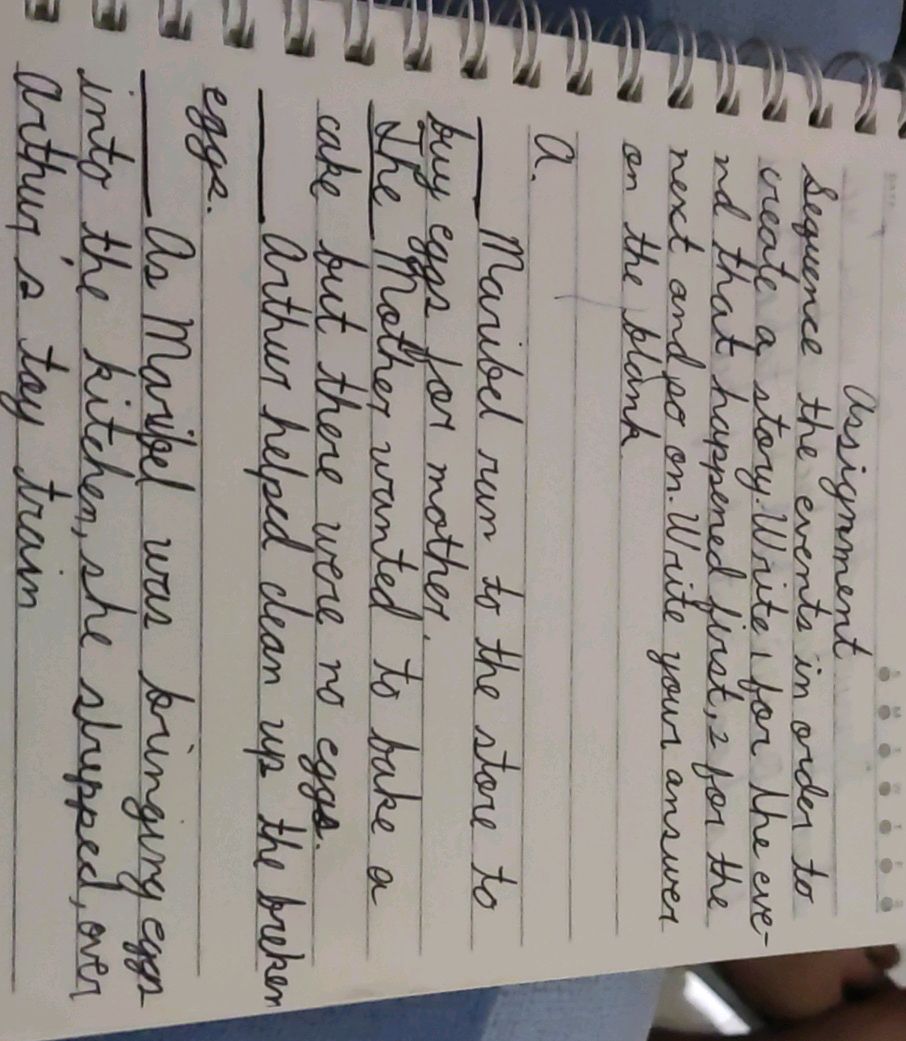 Assignment
Sequence the events in order to
create a story. Write 1 for the eve-
nd that happened first, 2 for the
next and so on. Write your answer
on the blank
a.
____ Maribel run to the store to
buy eggs for mother.
____ The Mother wanted to bake a
cake but there were no eggs.
____ Arthur helped clean up the broken
eggs.
____ As Maribel was bringing eggs
into the kitchen, she slipped, over
Arthur's toy train